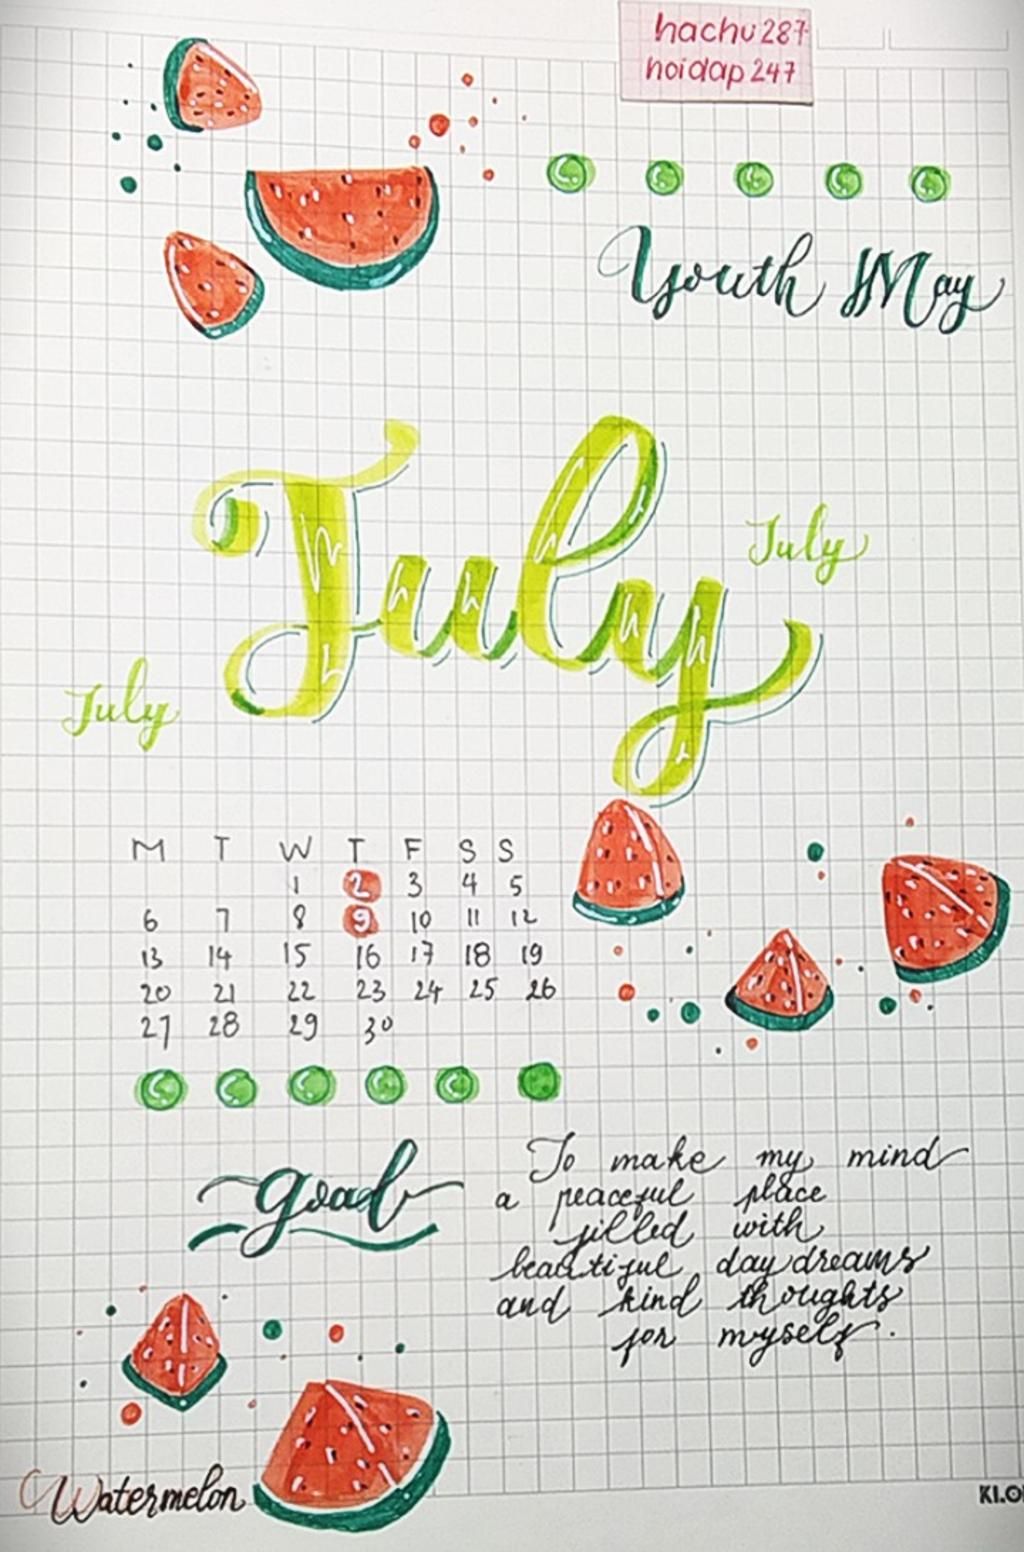 hachu287
hoidap247
Youth May
July
July
July
M T W T F S S
1 2 3 4 5
6 7 8 9 10 11 12
13 14 15 16 17 18 19
20 21 22 23 24 25 26
27 28 29 30
goal
To make my mind
a peaceful place
filled with
beautiful daydreams
and kind thoughts
for myself.
Watermelon